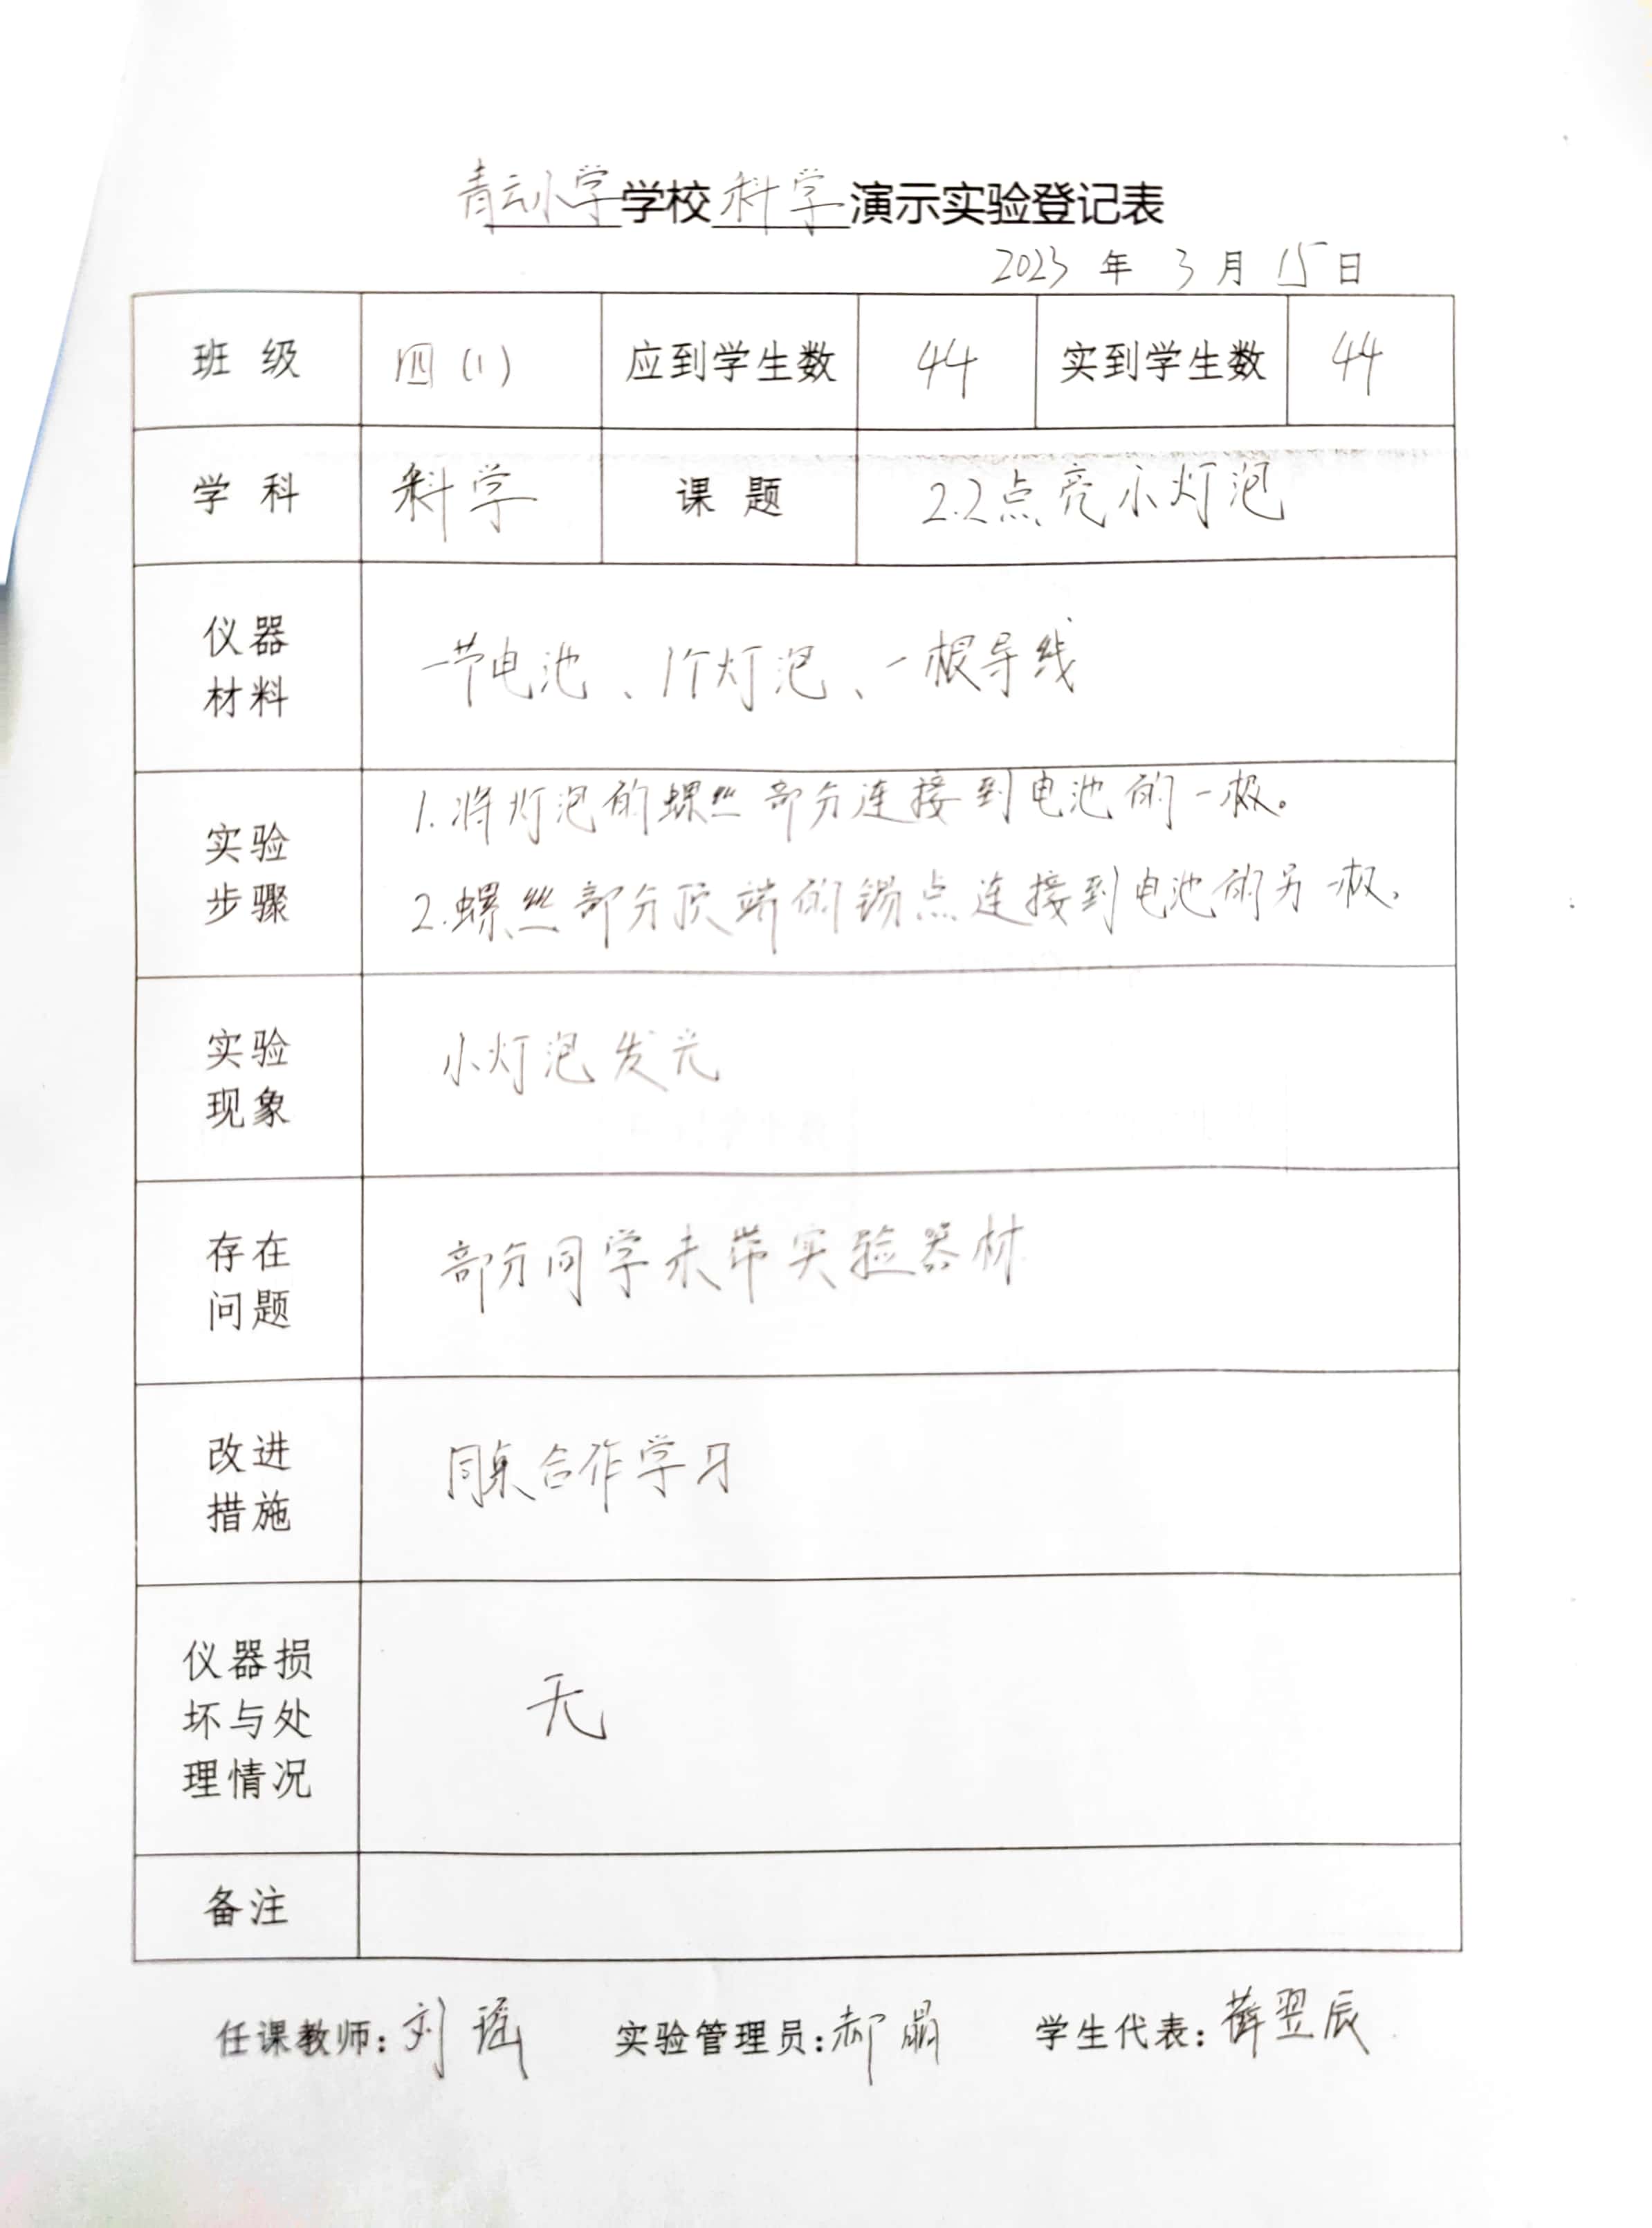 青云小学学校科学演示实验登记表
2023 年 3 月 15 日
班 级 四(1) 应到学生数 44 实到学生数 44
学 科 科学 课 题 2.2点亮小灯泡
仪器
材料
一节电池、1个灯泡、一根导线
实验
步骤
1.将灯泡的螺丝部分连接到电池的一极。
2.螺丝部分顶端的锡点连接到电池的另一极.
实验
现象
小灯泡发光
存在
问题
部分同学未带实验器材
改进
措施
同桌合作学习
仪器损
坏与处
理情况
无
备注
任课教师:刘瑶 实验管理员:郝晶 学生代表:薛翌辰